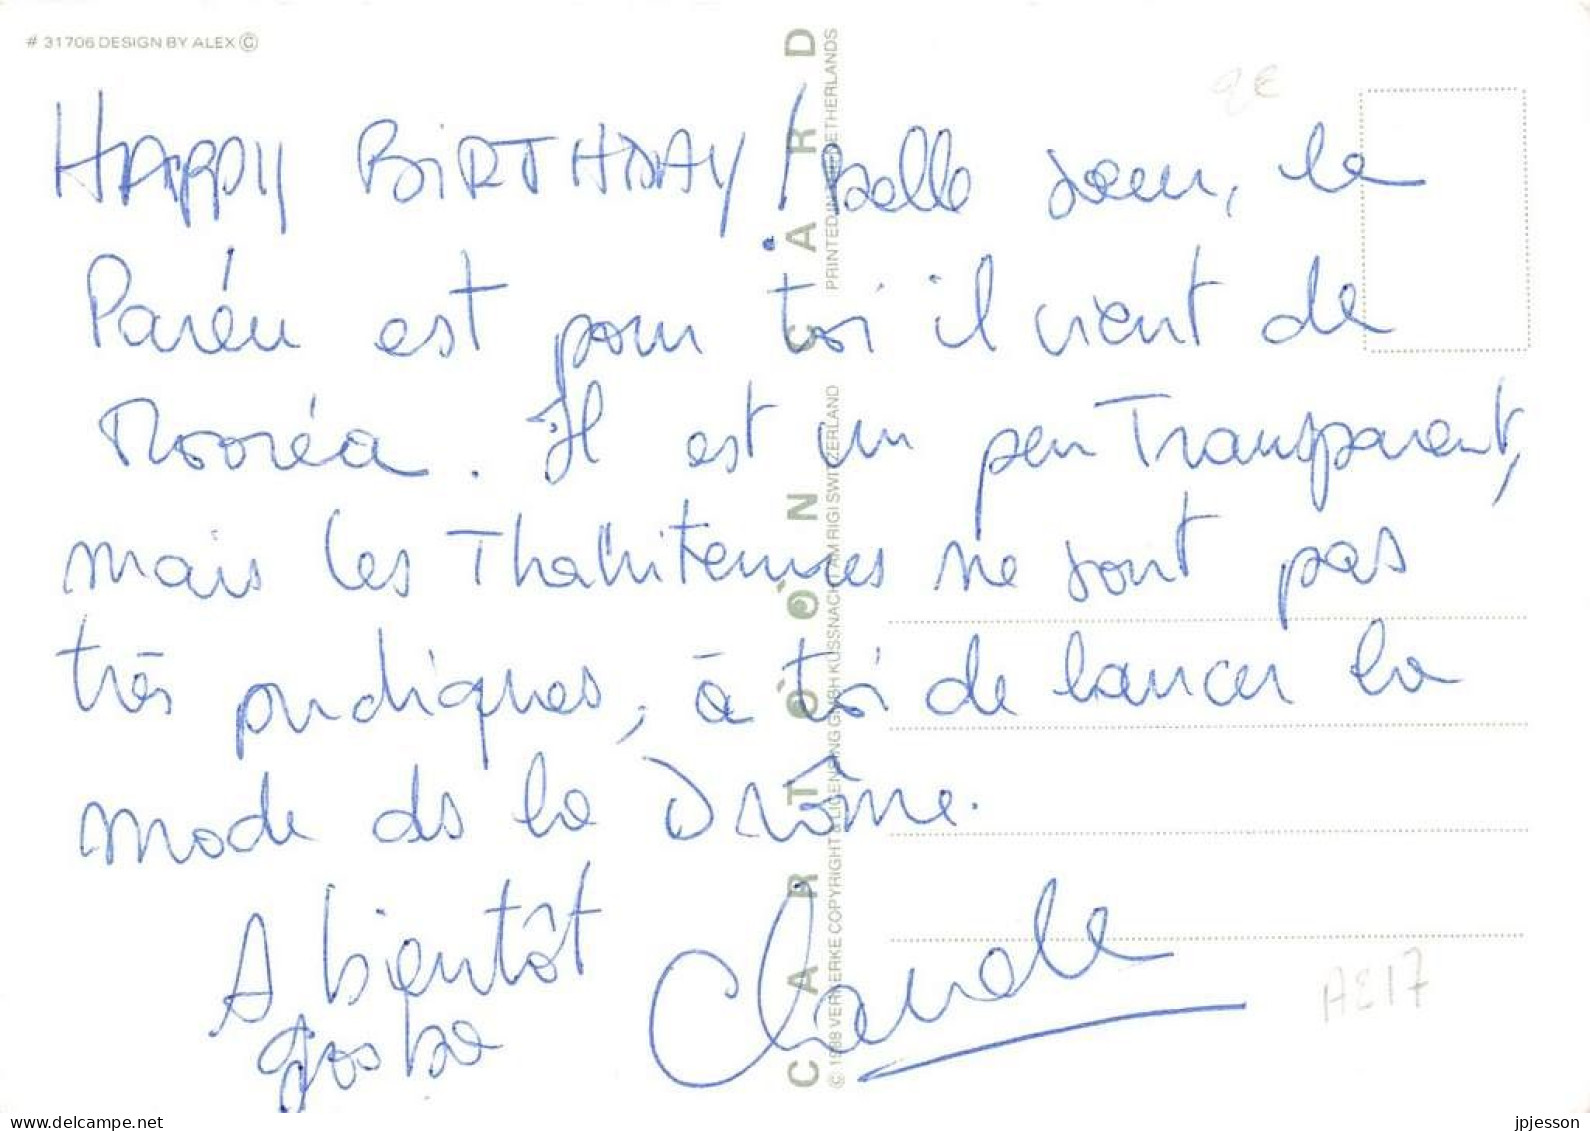 # 31706 DESIGN BY ALEX ©
2€
HAPPY BIRTHDAY! belle sœur, le
Paréu est pour toi il vient de
Mooréa. Il est un peu Transparent,
mais les Thahitennes ne sont pas
très pudiques, à toi de lancer la
mode ds la Drôme.
A bientôt
gros bx
Claude
AE17
CARTOON CARD
© 1988 VERKERKE COPYRIGHT & LICENSING GMBH KÜSSNACHT AM RIGI SWITZERLAND PRINTED IN THE NETHERLANDS
www.delcampe.net
jpjesson